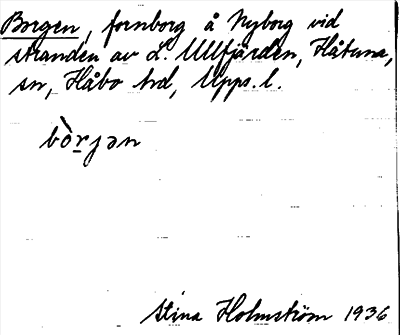 Borgen, fornborg å Nyborg vid
stranden av L. Ullfjärden, Håtuna,
sn, Håbo hd, Upps. l.
bòrjən
Stina Holmström 1936